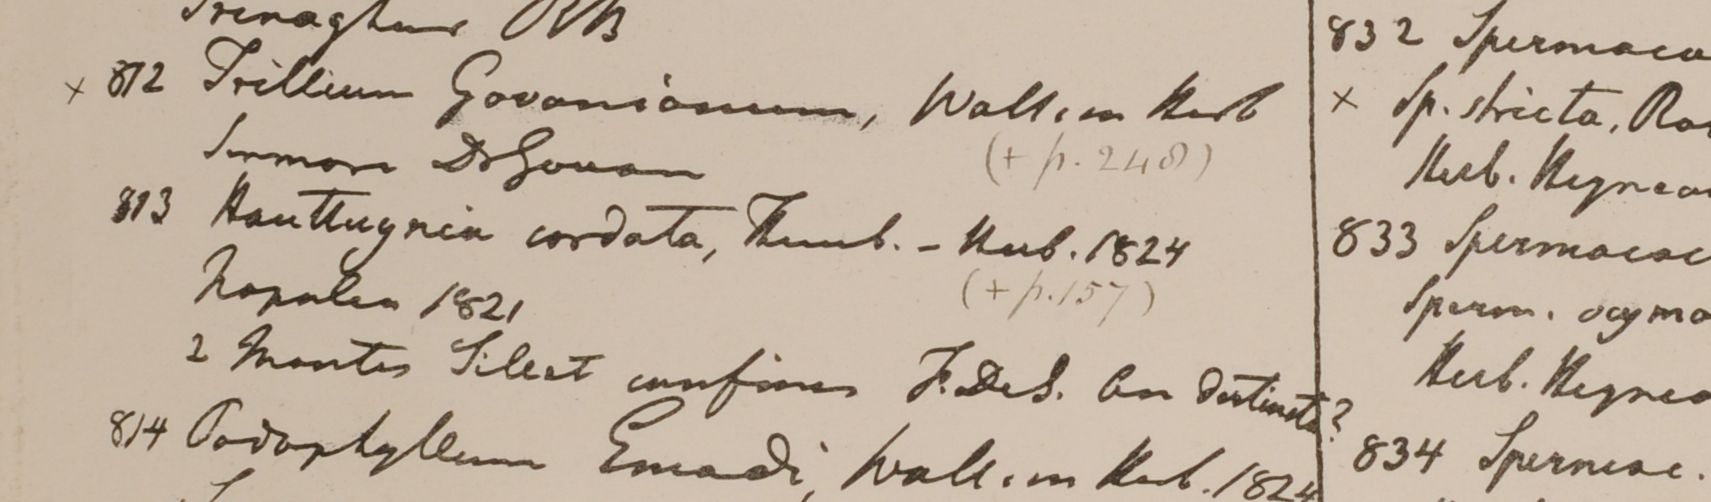 Srinaghur RB
× 812 Trillium Govanianum, Wall. in Herb
Sirmore Dr Govan
(+ p. 248)
813 Houttuynia cordata, Thunb. - Herb. 1824
Napalia 1821
(+ p. 157)
2 Montes Silest confines F. De S. an distincta?
814 Podophyllum Emodi, Wall. in Herb. 1824
832 Spermaco
× Sp. stricta, Ro
Herb. Heynea
833 Spermacoc
Sperm. ocymo
Herb. Heynea
834 Spermac.